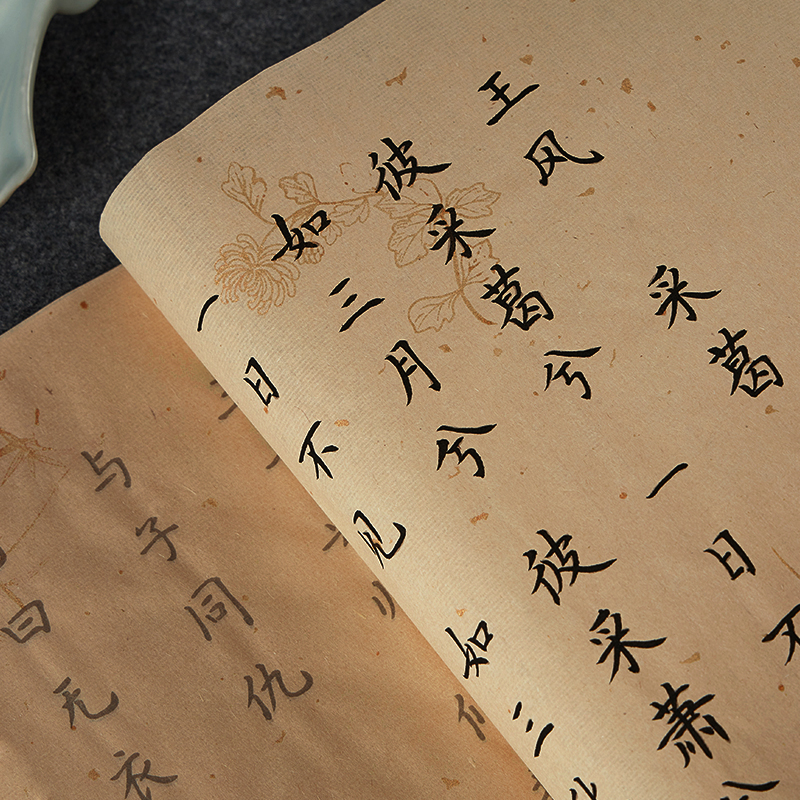 王风 采葛
彼采葛兮 一日不
如三月兮 彼采萧兮
一日不见 如三
与子同仇
曰无衣